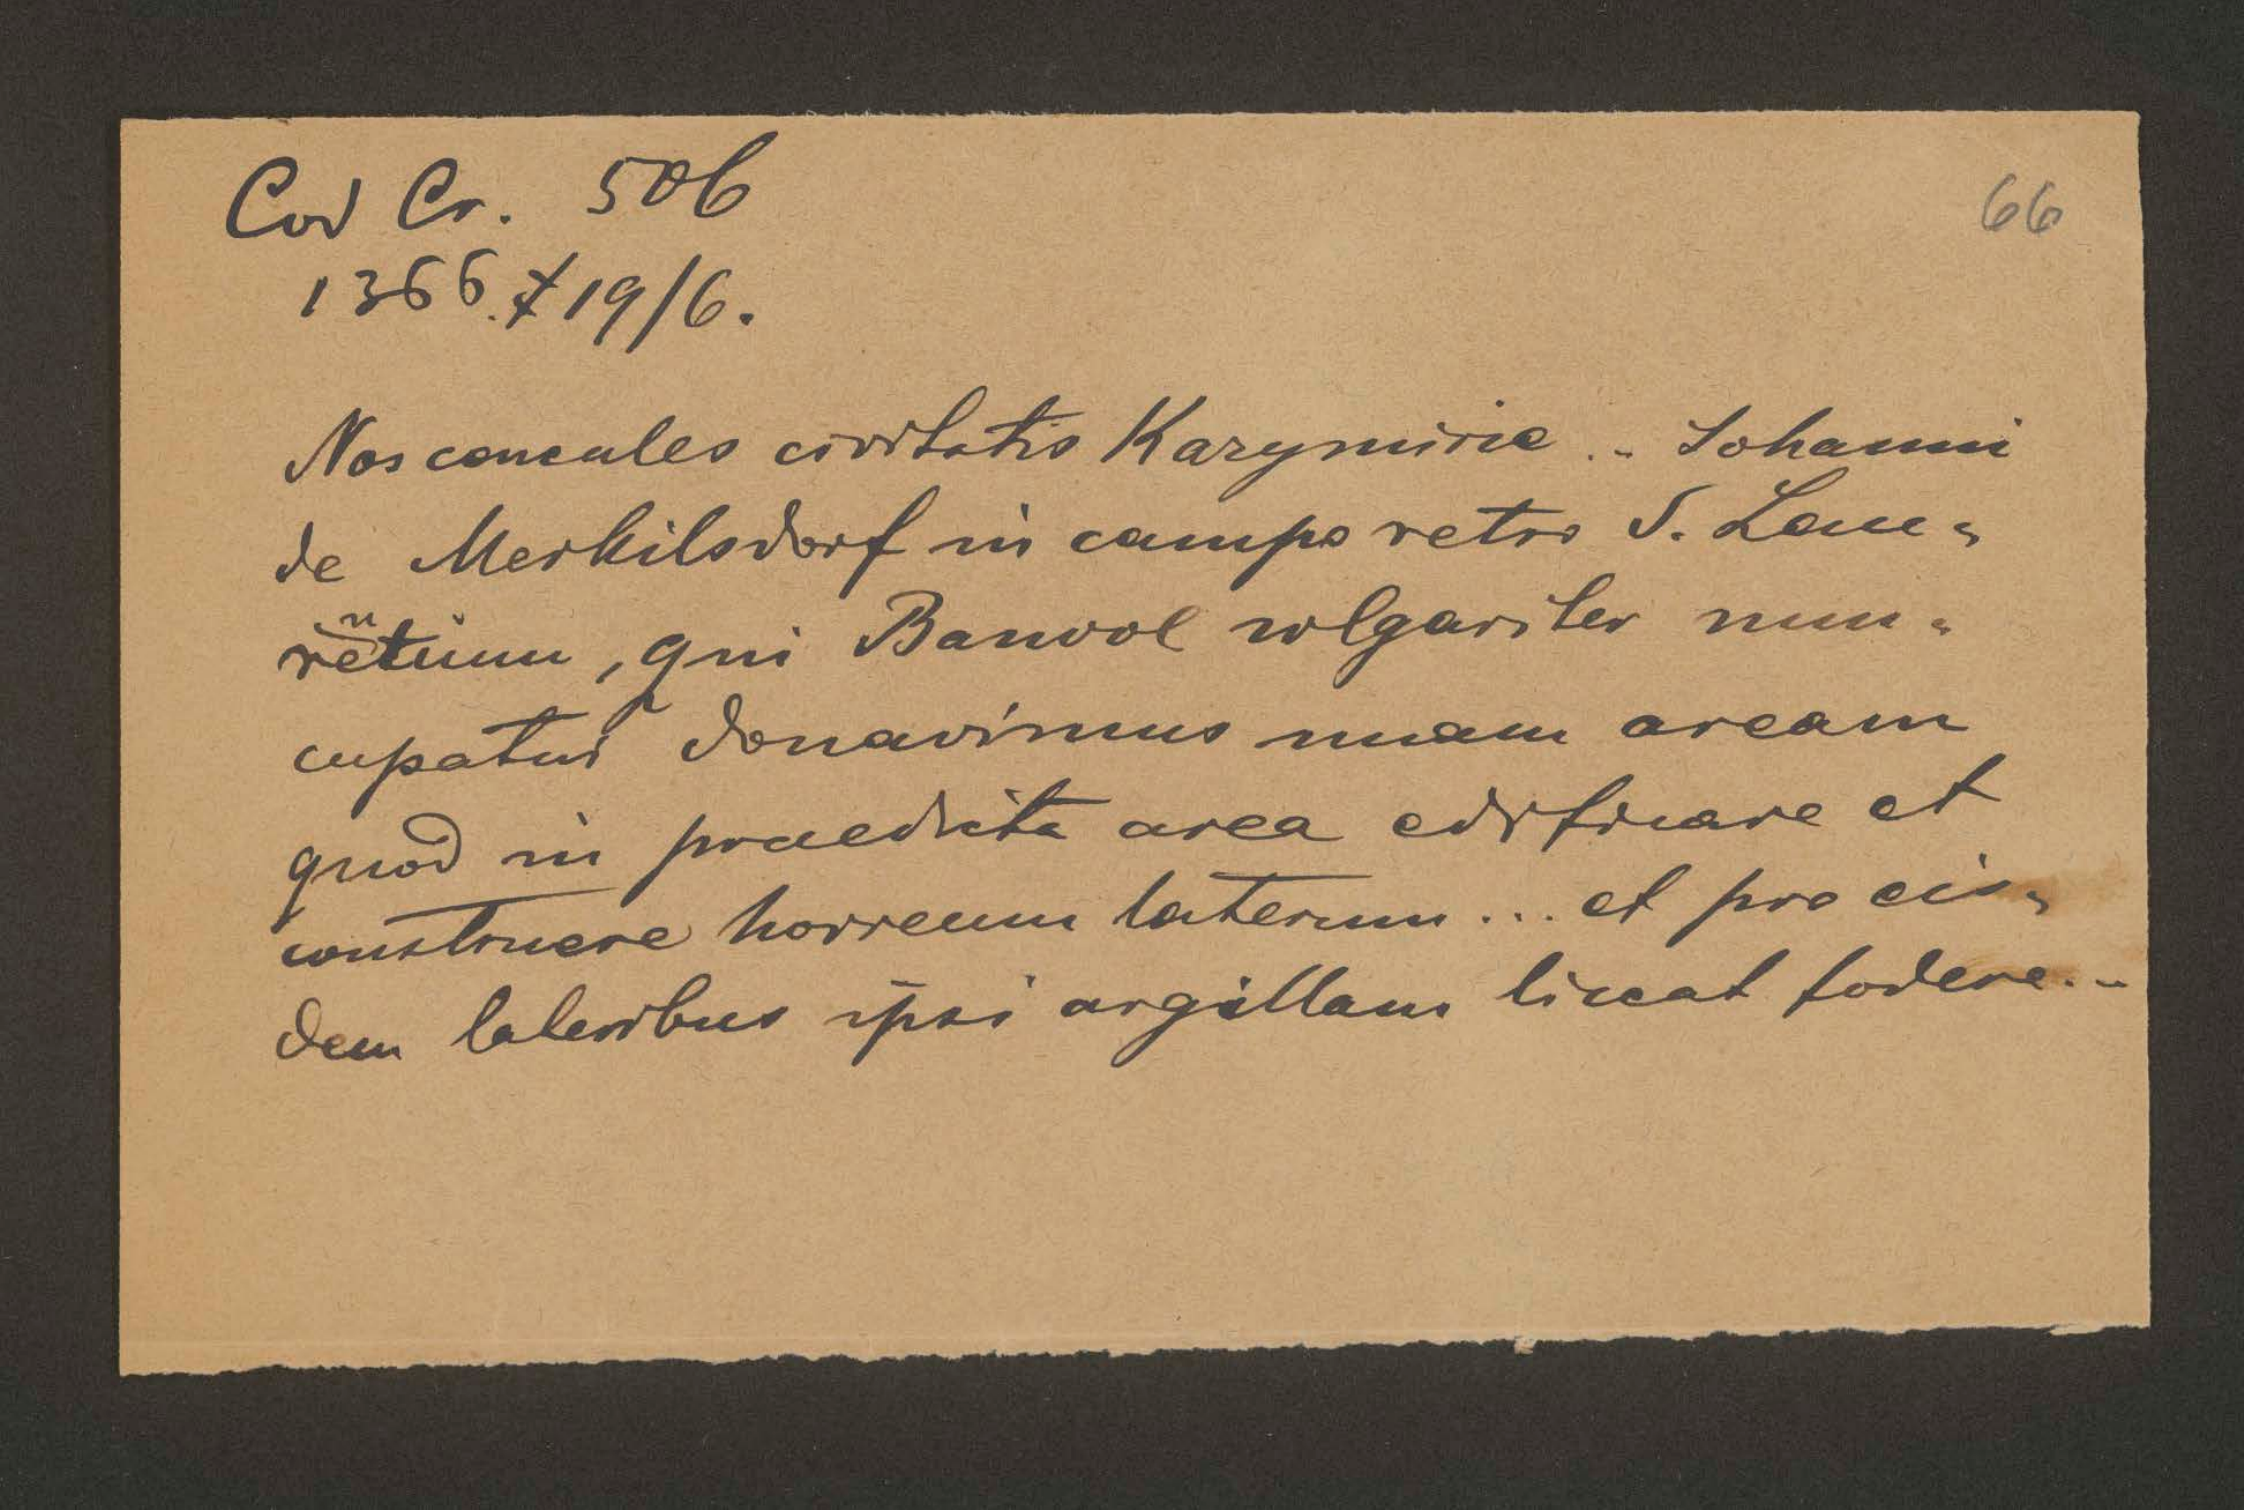 Cod Cr. 506
66
1366. 19/6.
Nos concules civitatis Kazymirie .. Johanni
de Merkilsdorf in campo retro S. Lau-
rētium, qui Bawol wlgariter nun-
cupatur donavimus unam aream
quod in praedicta area edificare et
construere horreum laterum ... et pro eis-
dem lateribus ipsi argillam liceat fodere ..